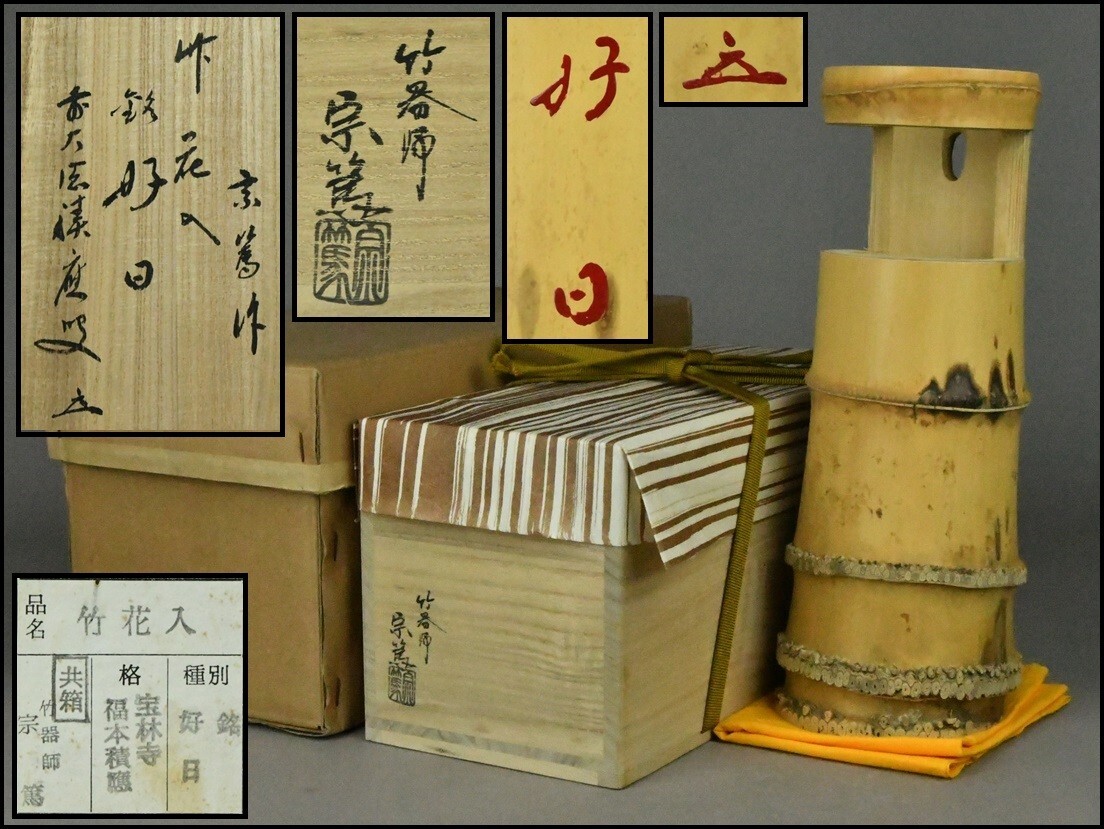 宗篤作
竹花入
銘 好日
前大徳積應叟
竹器師
宗篤
宗篤
好日
竹器師
宗篤
宗篤
品名
竹花入
種別
銘 好日
格
宝林寺
福本積應
共箱
竹器師
宗篤